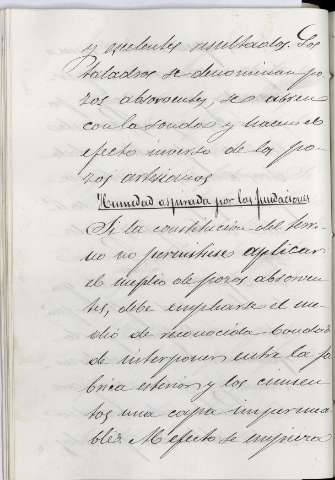 y excelentes resultados. Los
taladros se denominan po-
zos absorventes, se abren
con la sonda y hacen el
efecto inverso de los po-
zos artesianos
Humedad aspirada por las fundaciones
Si la constitucion del terre
no no permitiese aplicar
el empleo de pozos absorven
tes, debe emplearse el me
dio de reconocida bondad
de interponer entre la fa
brica exterior y los cimien
tos una capa impermea
ble. Al efecto se empieza